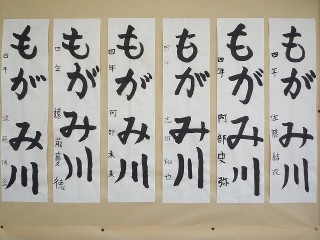 もがみ川
四年 佐藤
もがみ川
四年 阿部史弥
もがみ川
四年
もがみ川
四年 阿部未来
もがみ川
四年 遠藤慶徳
もがみ川
四年